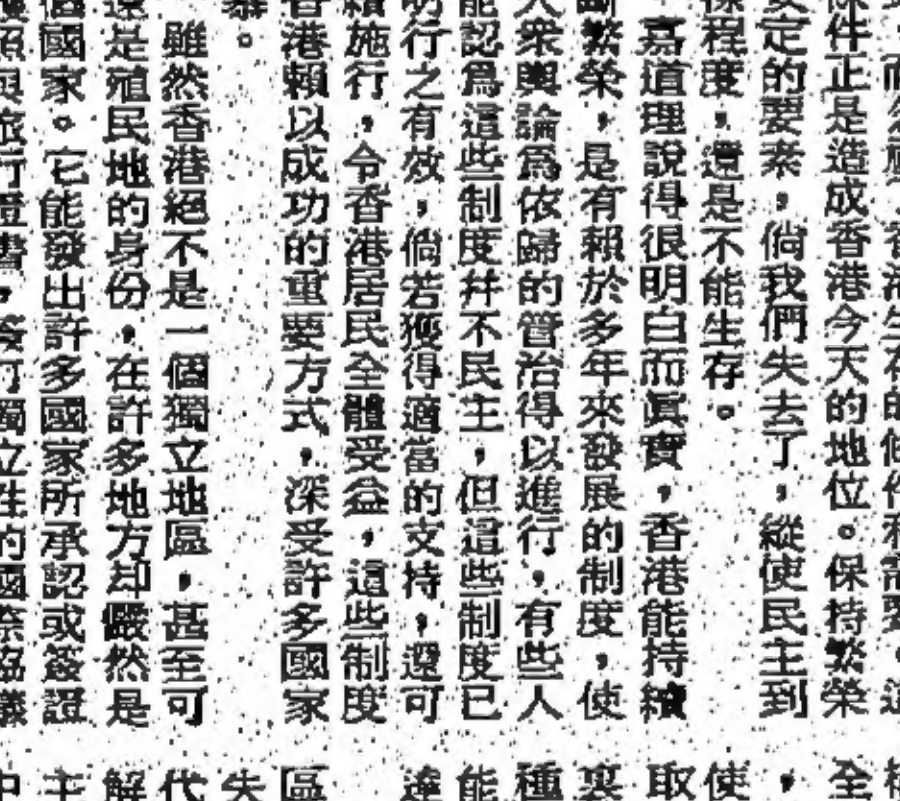 件正是造成香港今天的地位。保持繁榮
定的要素，倘我們失去了，縱使民主到
程度，還是不能生存。
嘉道理說得很明白而眞實，香港能持續
繁榮，是有賴於多年來發展的制度，使
衆輿論爲依歸的管治得以進行，有些人
能認爲這些制度幷不民主，但這些制度已
行之有效，倘若獲得適當的支持，還可
施行，令香港居民全體受益，這些制度
香港賴以成功的重要方式，深受許多國家
。
雖然香港絕不是一個獨立地區，甚至可
是殖民地的身份，在許多地方却儼然是
個國家。它能發出許多國家所承認或簽證
全
，
使
取
裏
種
能
達
區
失
代
解
主